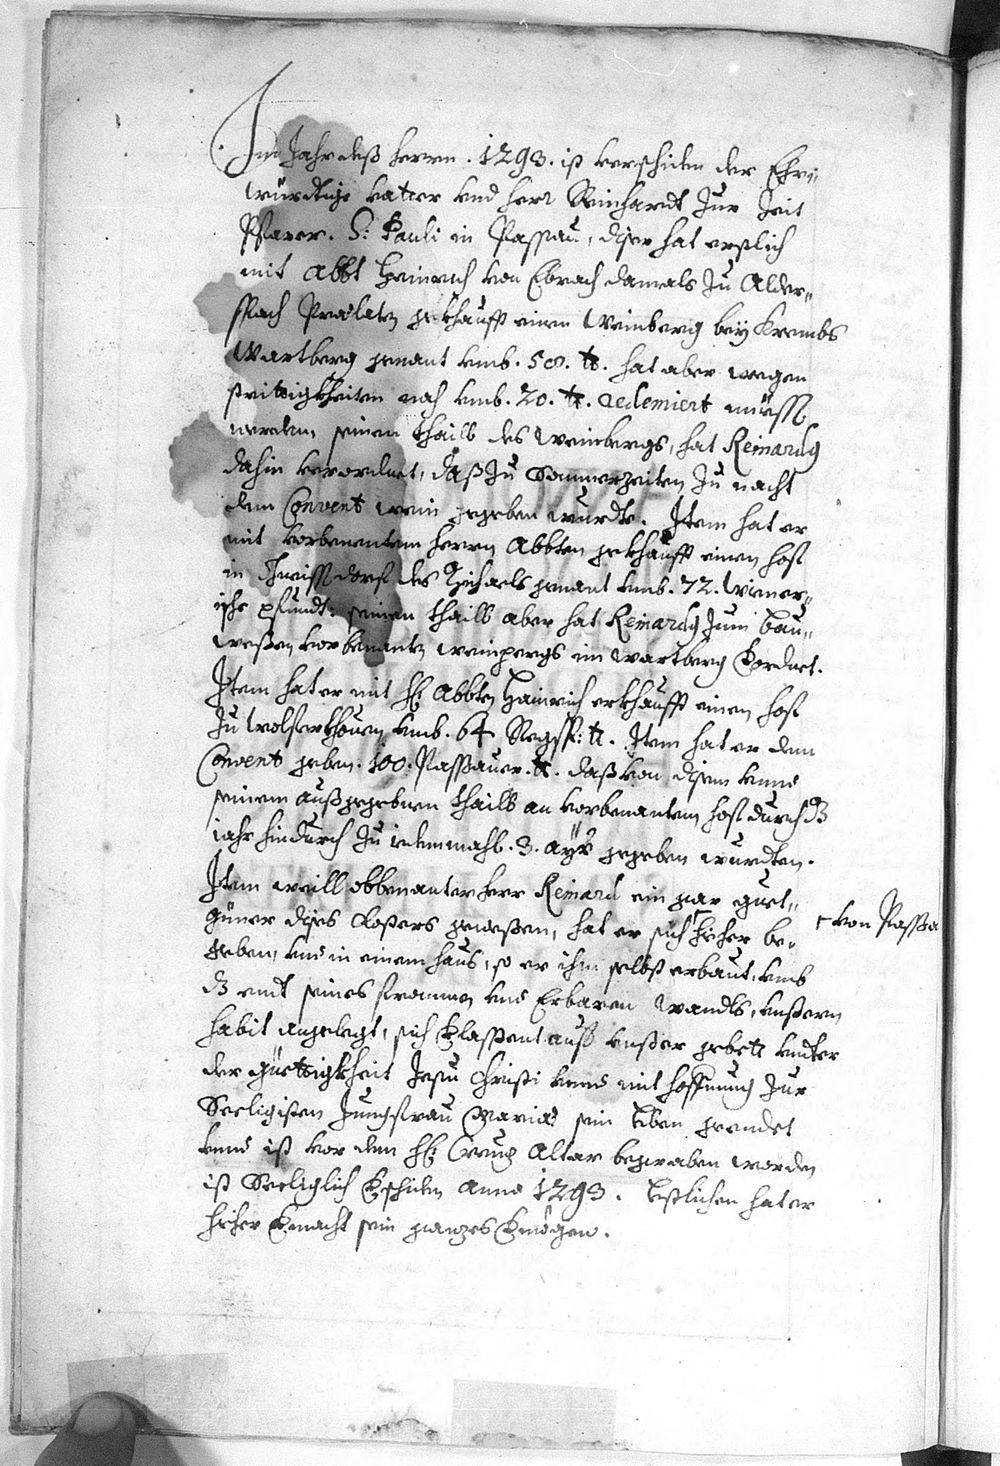 Im Jahr deß herrn. 1293. ist verschiden der Ehr-
würdtige vatter vnd herr Reinhardt Zur Zeit
Pfarrer. S: Pauli in Passau, diser hat erstlich
mit Abbt Heinrich von Ebrach damals zu Alder-
spach Praelaten gekhaufft einen Weinberg bey Krembs
Wartberg genant vmb. 50. ℔. hat aber wegen
strittigkheiten noch vmb. 20. ℔. redemiert müessen
werden, seinen thaill des Weinbergs, hat Reinardg
dahin verordnet, daß zu Sommerzeiten zu nacht
dem Convent wein gegeben wurdte. Item hat er
mit vorbenentem herrn Abbten gekhaufft einen hoff
in dorf des Michaels genant vmb. 72. Wiener-
ische pfundt: seinen thaill aber hat Reinardg zum bau-
weßen vorbenanten weinpergs im Wartberg Vordnet.
Item hat er mit H: Abbten Hainrich erkhaufft einen hoff
zu vmb. 64 Regsp: ℔. Item hat er dem
Convent geben. 100. Passauer. ℔. daß von disem vnnd
seinem außgegebnen thaill an vorbenantem hoff durch dz
iahr hindurch zu iedemmahl. 3. ayr gegeben wurdten.
Item weill obbenanter herr Reinard ein gar guet-
güner dises Closters geweßen, hat er sich hieher be- ⌈ von Passa
geben, vnd in einem haus, so er ihm selbst erbaut, vmb
dz endt seines frommen vnd Erbaren Wandls, vnßern
habit angelegt, sich Vlassent auff vnßer gebett vndter
der güettigkheit Jesu Christi vnnd mit hoffnung zur
Seeligisten Jungfrau Maria sein leben geendet
vnnd ist vor dem H: Creuz Altar begraben worden
ist Seeliglich Vschiden Anno 1293. Lestlichen hat er
hieher Vmacht sein ganzes Vmögen.